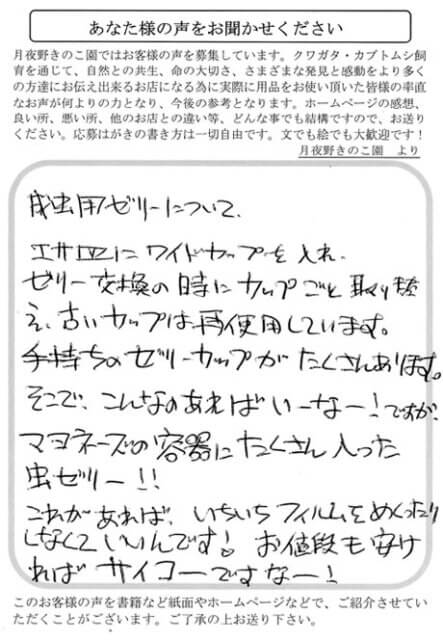 あなた様の声をお聞かせください
月夜野きのこ園ではお客様の声を募集しています。クワガタ・カブトムシ飼
育を通じて、自然との共生、命の大切さ、さまざまな発見と感動をより多く
の方達にお伝え出来るお店になる為に実際に用品をお使い頂いた皆様の率直
なお声が何よりの力となり、今後の参考となります。ホームページの感想、
良い所、悪い所、他のお店との違い等、どんな事でも結構ですので、お送り
ください。応募はがきの書き方は一切自由です。文でも絵でも大歓迎です！
月夜野きのこ園　より
成虫用ゼリーについて、
エサ皿にワイドカップを入れ、
ゼリー交換の時にカップごと取り替
え、古いカップは再使用しています。
手持ちのゼリーカップがたくさんあります。
そこで、こんなのあればいーなー！ですが、
マヨネーズの容器にたくさん入った
虫ゼリー！！
これがあれば、いちいちフィルムをめくったり
しなくていいんです！お値段も安け
ればサイコーですなー！
このお客様の声を書籍など紙面やホームページなどで、ご紹介させてい
ただくことがございます。ご了承の上お送り下さい。